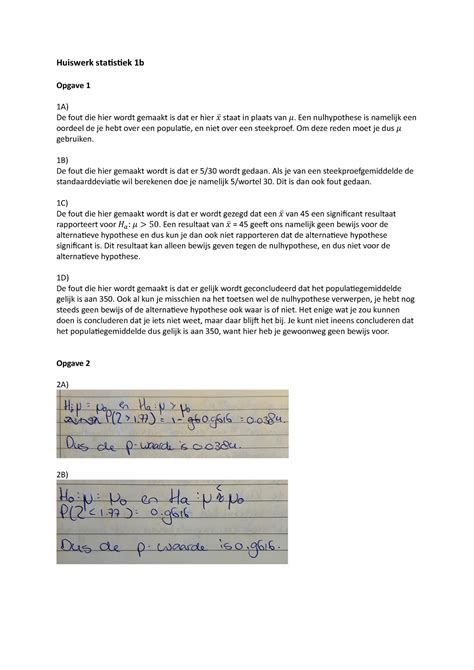 Huiswerk statistiek 1b
Opgave 1
1A)
De fout die hier wordt gemaakt is dat er hier x̄ staat in plaats van μ. Een nulhypothese is namelijk een
oordeel de je hebt over een populatie, en niet over een steekproef. Om deze reden moet je dus μ
gebruiken.
1B)
De fout die hier gemaakt wordt is dat er 5/30 wordt gedaan. Als je van een steekproefgemiddelde de
standaarddeviatie wil berekenen doe je namelijk 5/wortel 30. Dit is dan ook fout gedaan.
1C)
De fout die hier gemaakt wordt is dat er wordt gezegd dat een x̄ van 45 een significant resultaat
rapporteert voor Hₐ: μ > 50. Een resultaat van x̄ = 45 geeft ons namelijk geen bewijs voor de
alternatieve hypothese en dus kun je dan ook niet rapporteren dat de alternatieve hypothese
significant is. Dit resultaat kan alleen bewijs geven tegen de nulhypothese, en dus niet voor de
alternatieve hypothese.
1D)
De fout die hier gemaakt wordt is dat er gelijk wordt geconcludeerd dat het populatiegemiddelde
gelijk is aan 350. Ook al kun je misschien na het toetsen wel de nulhypothese verwerpen, je hebt nog
steeds geen bewijs of de alternatieve hypothese ook waar is of niet. Het enige wat je zou kunnen
doen is concluderen dat je iets niet weet, maar daar blijft het bij. Je kunt niet ineens concluderen dat
het populatiegemiddelde dus gelijk is aan 350, want hier heb je gewoonweg geen bewijs voor.
Opgave 2
2A)
H₀: μ = μ₀ en Ha: μ > μ₀
P(Z > 1.77) = 1 - 0.9616 = 0.0384.
Dus de p-waarde is 0.0384.
2B)
H₀: μ = μ₀ en Ha: μ < μ₀
P(Z < 1.77) = 0.9616
Dus de p-waarde is 0.9616.